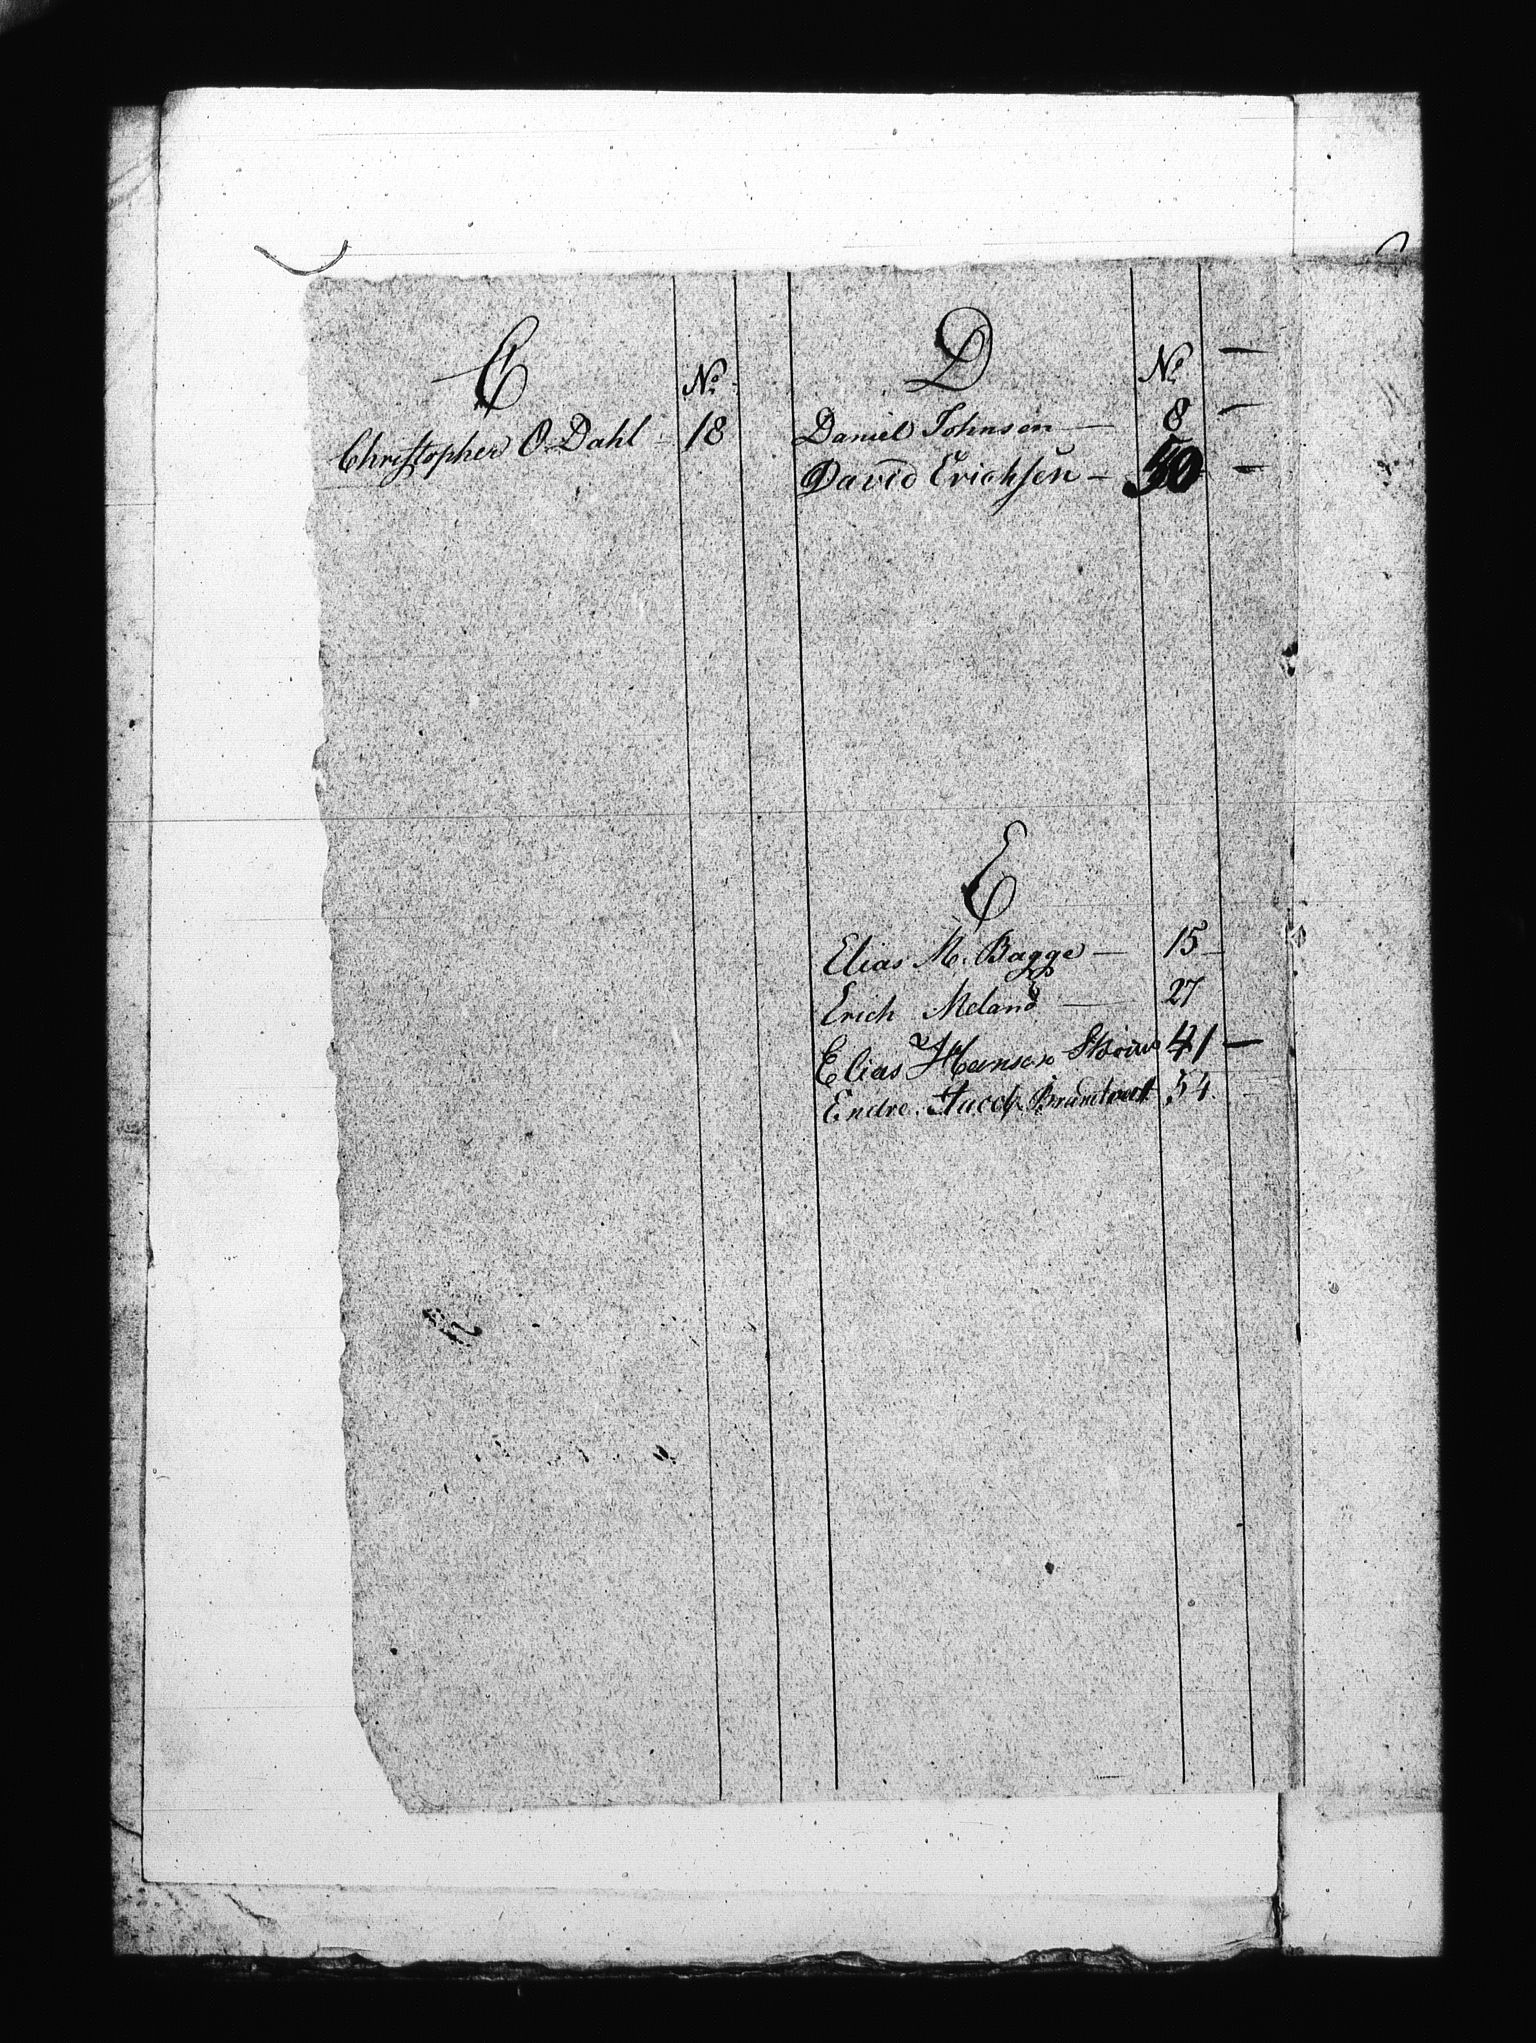 C
No.
Christopher O. Dahl 18
D
No.
Daniel Johnsen — 8 —
David Erichsen — 50 —
E
Elias M. Bagge — 15
Erich Meland — 27
Elias Hansen 41 —
Endre Jacob 54.